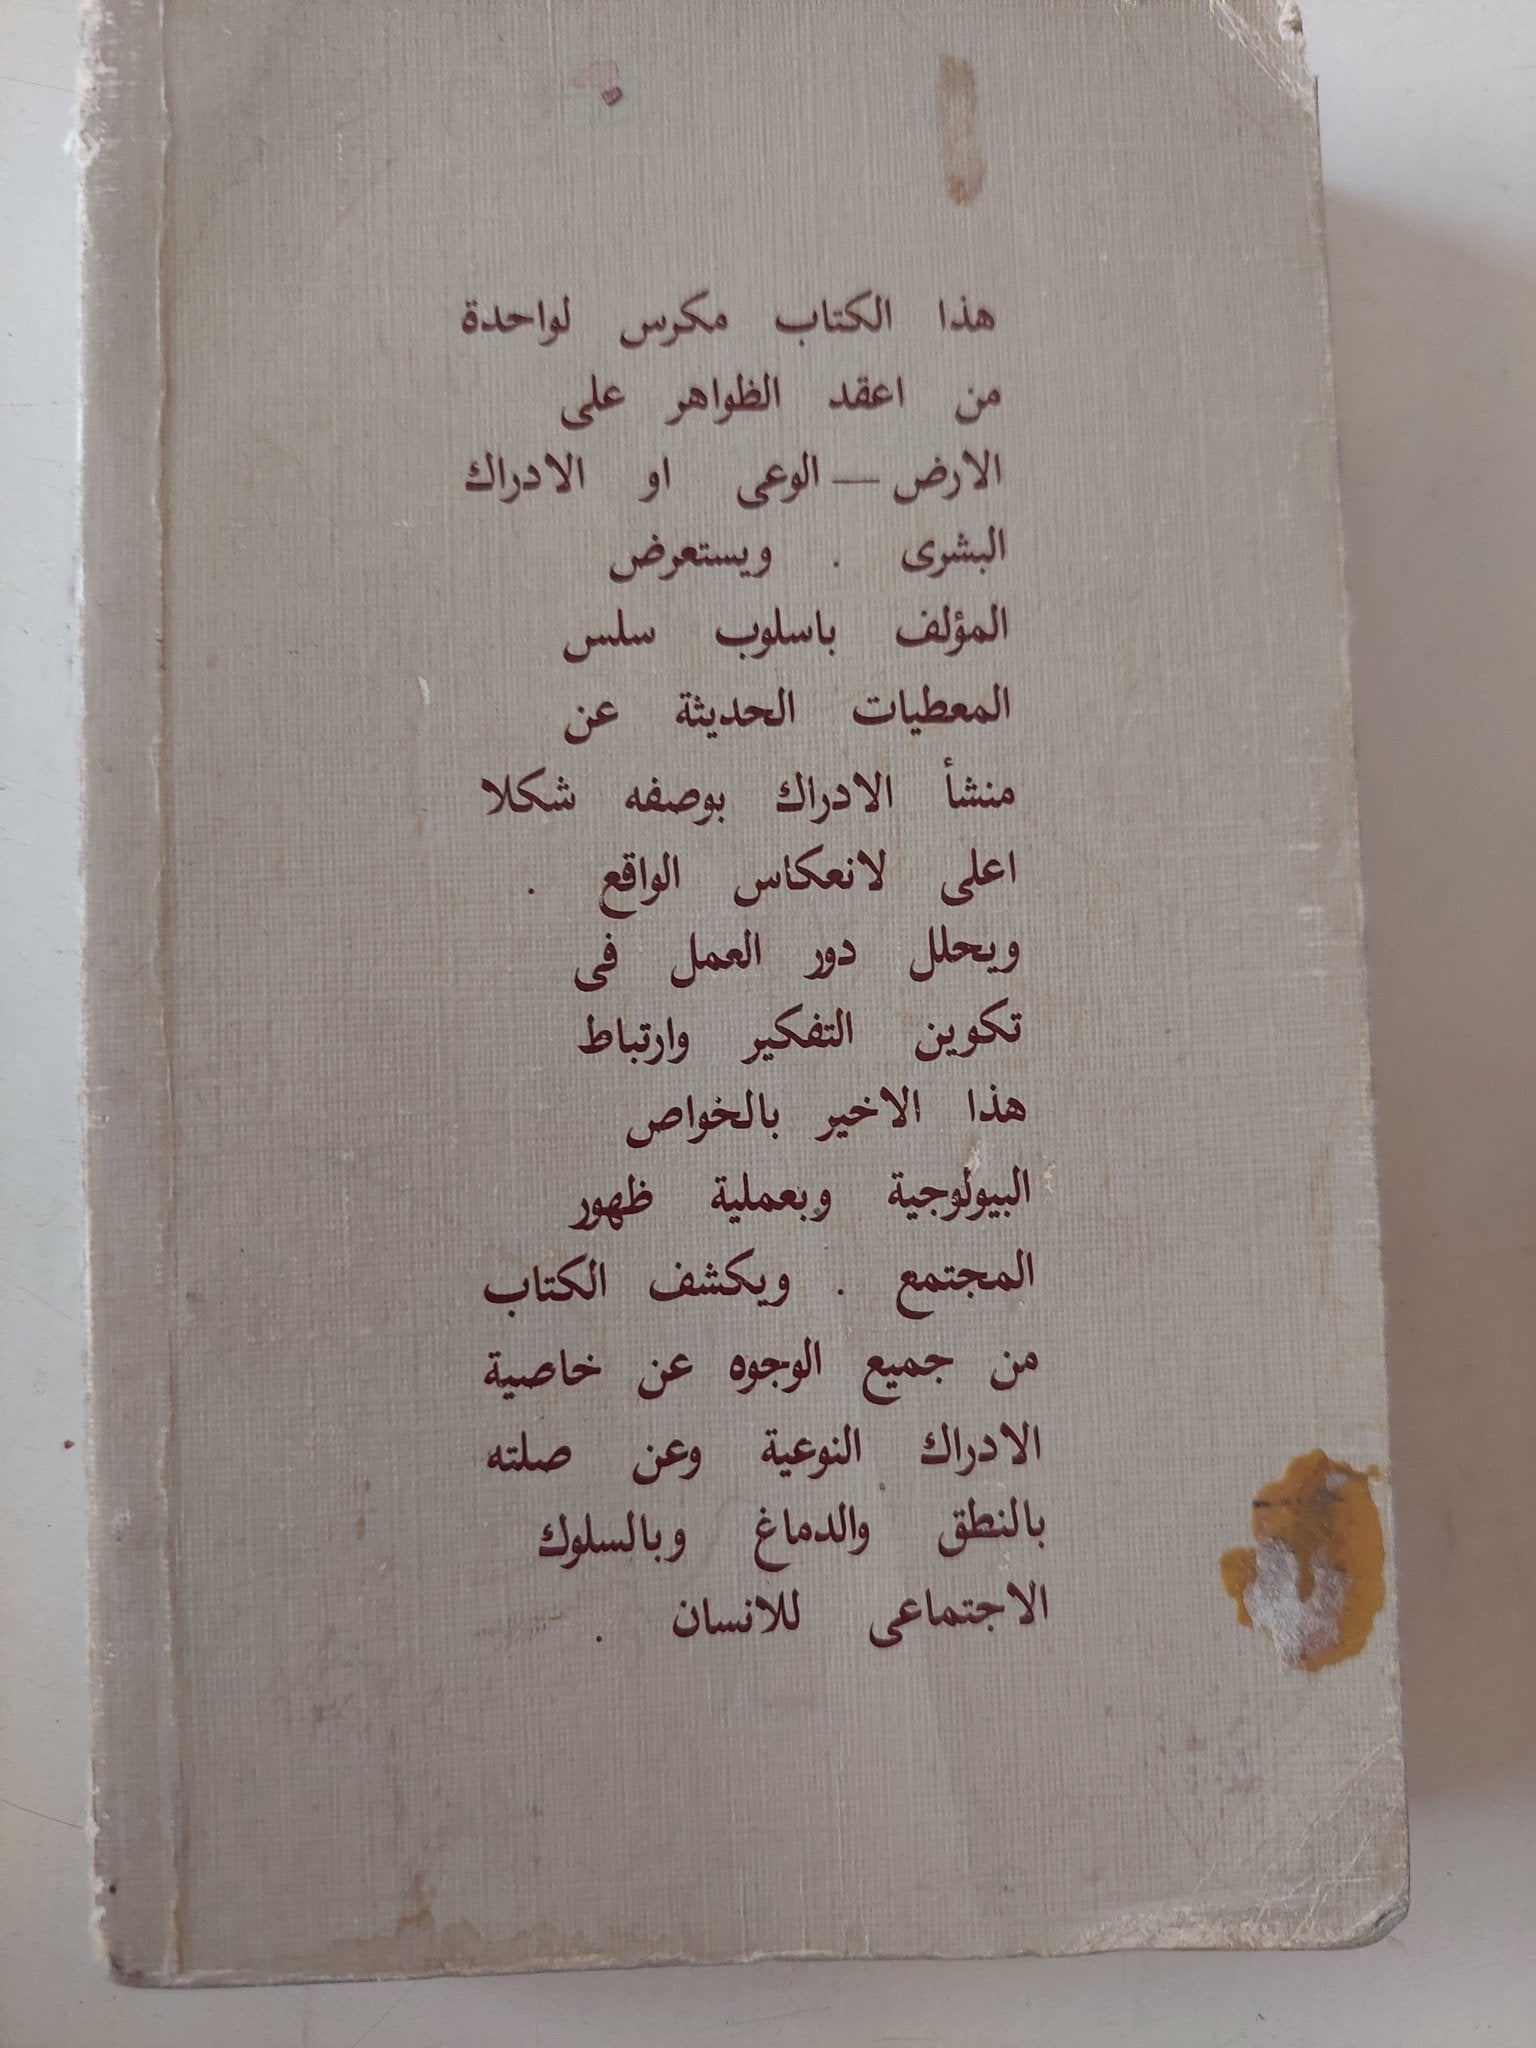 هذا الكتاب مكرس لواحدة
من اعقد الظواهر على
الارض — الوعى او الادراك
البشرى . ويستعرض
المؤلف باسلوب سلس
المعطيات الحديثة عن
منشأ الادراك بوصفه شكلا
اعلى لانعكاس الواقع .
ويحلل دور العمل فى
تكوين التفكير وارتباط
هذا الاخير بالخواص
البيولوجية وبعملية ظهور
المجتمع . ويكشف الكتاب
من جميع الوجوه عن خاصية
الادراك النوعية وعن صلته
بالنطق والدماغ وبالسلوك
الاجتماعى للانسان .